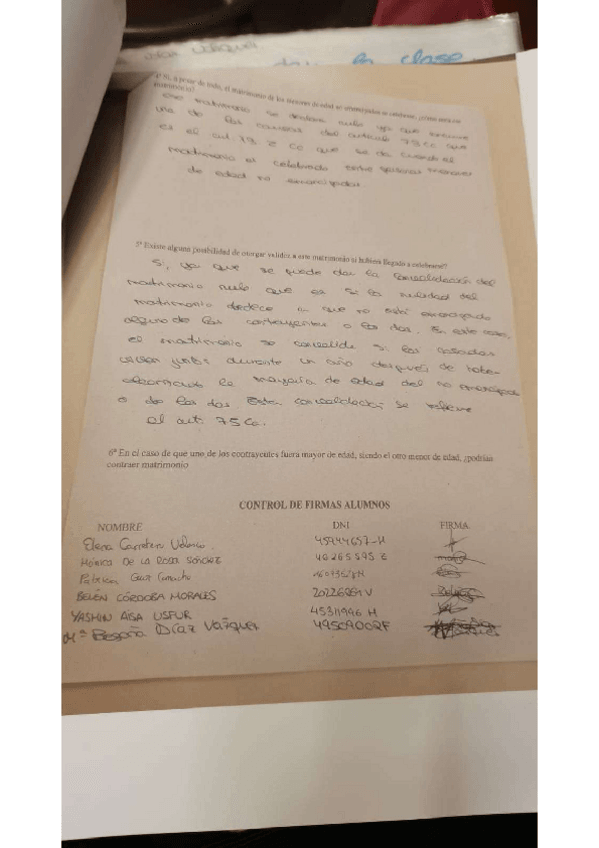 en clase
4ª Si, a pesar de todo, el matrimonio de los menores de edad no emancipados se celebrase, ¿cómo sería ese
matrimonio?
Ese matrimonio se declara nulo ya que
una de las causas del artículo 73 cc que
es el art. 73. 2 cc que se da cuando el
matrimonio es celebrado entre personas menores
de edad no emancipadas
5ª Existe alguna posibilidad de otorgar validez a este matrimonio si hubiera llegado a celebrarse?
Si, ya que se puede dar la convalidación del
matrimonio nulo que es si la nulidad del
matrimonio que no esté emancipado
alguno de los contrayentes o los dos. En este caso,
el matrimonio se convalida si los casados
viven juntos durante un año después de
la mayoría de edad del no
o de los dos. Esta convalidación se refiere
al art. 75 Cc.
6ª En el caso de que uno de los contrayentes fuera mayor de edad, siendo el otro menor de edad, ¿podrían
contraer matrimonio
CONTROL DE FIRMAS ALUMNOS
NOMBRE DNI FIRMA
Elena Velasco
Mónica DE LA ROSA SÁNCHEZ
Patricia Camacho
BELÉN CÓRDOBA MORALES 20226269V
YASMIN AISA USFUR 45311996 H
Mª Begoña Díaz Vázquez 49509002F